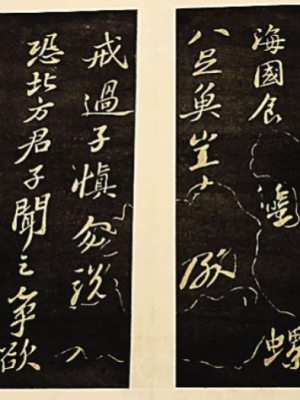 海國食蟹螺
八足魚豈
戒過子慎勿說
恐北方君子聞之爭欲